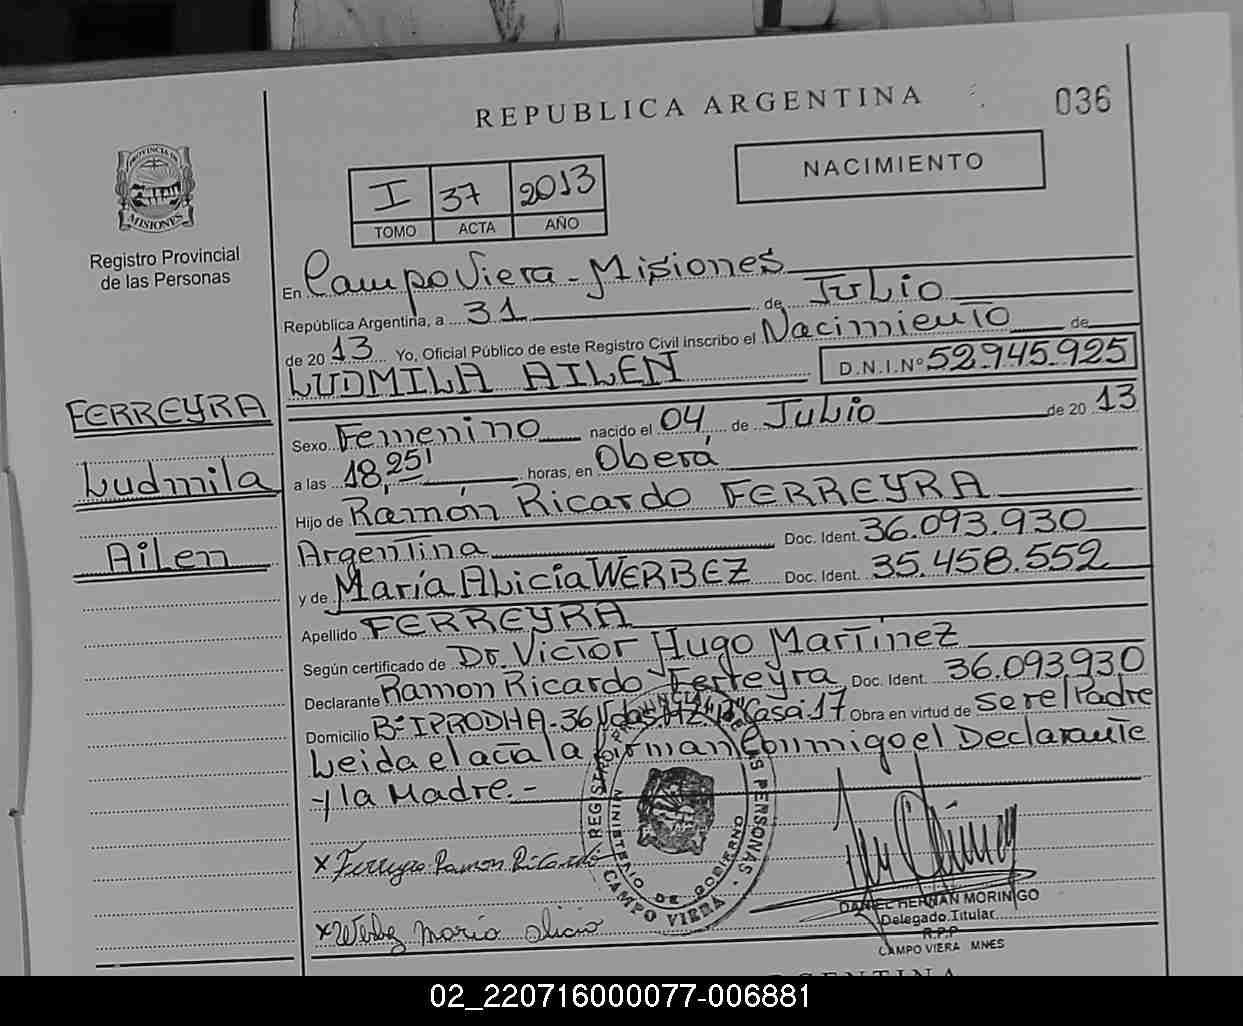 REPUBLICA ARGENTINA
036
PROVINCIA DE
MISIONES
Registro Provincial
de las Personas
I 37 2013
TOMO ACTA AÑO
NACIMIENTO
En Campo Viera - Misiones
República Argentina, a 31 de Julio
de 20 13 Yo, Oficial Público de este Registro Civil inscribo el Nacimiento de
LUDMILA AILEN D.N.I.Nº 52.945.925
FERREYRA
Ludmila
Ailen
Sexo Femenino nacido el 04 de Julio de 20 13
a las 18,25' horas, en Oberá
Hijo de Ramón Ricardo FERREYRA
Argentina Doc. Ident. 36.093.930
y de María Alicia WERBEZ Doc. Ident. 35.458.552
Apellido FERREYRA
Según certificado de Dr. Victor Hugo Martinez
Declarante Ramon Ricardo Ferreyra Doc. Ident. 36.093.930
Domicilio Bº IPRODHA - 36 Casa 17 Obra en virtud de ser el Padre
Leida el acta la firman conmigo el Declarante
y la Madre. -
x Ferreyra Ramon Ricardo
x Werbez Maria Alicia
REGISTRO PROVINCIAL DE LAS PERSONAS
MINISTERIO DE GOBIERNO
CAMPO VIERA
DANIEL HERNAN MORINIGO
Delegado Titular
R.P.P
CAMPO VIERA MNES
ARGENTINA
02_220716000077-006881